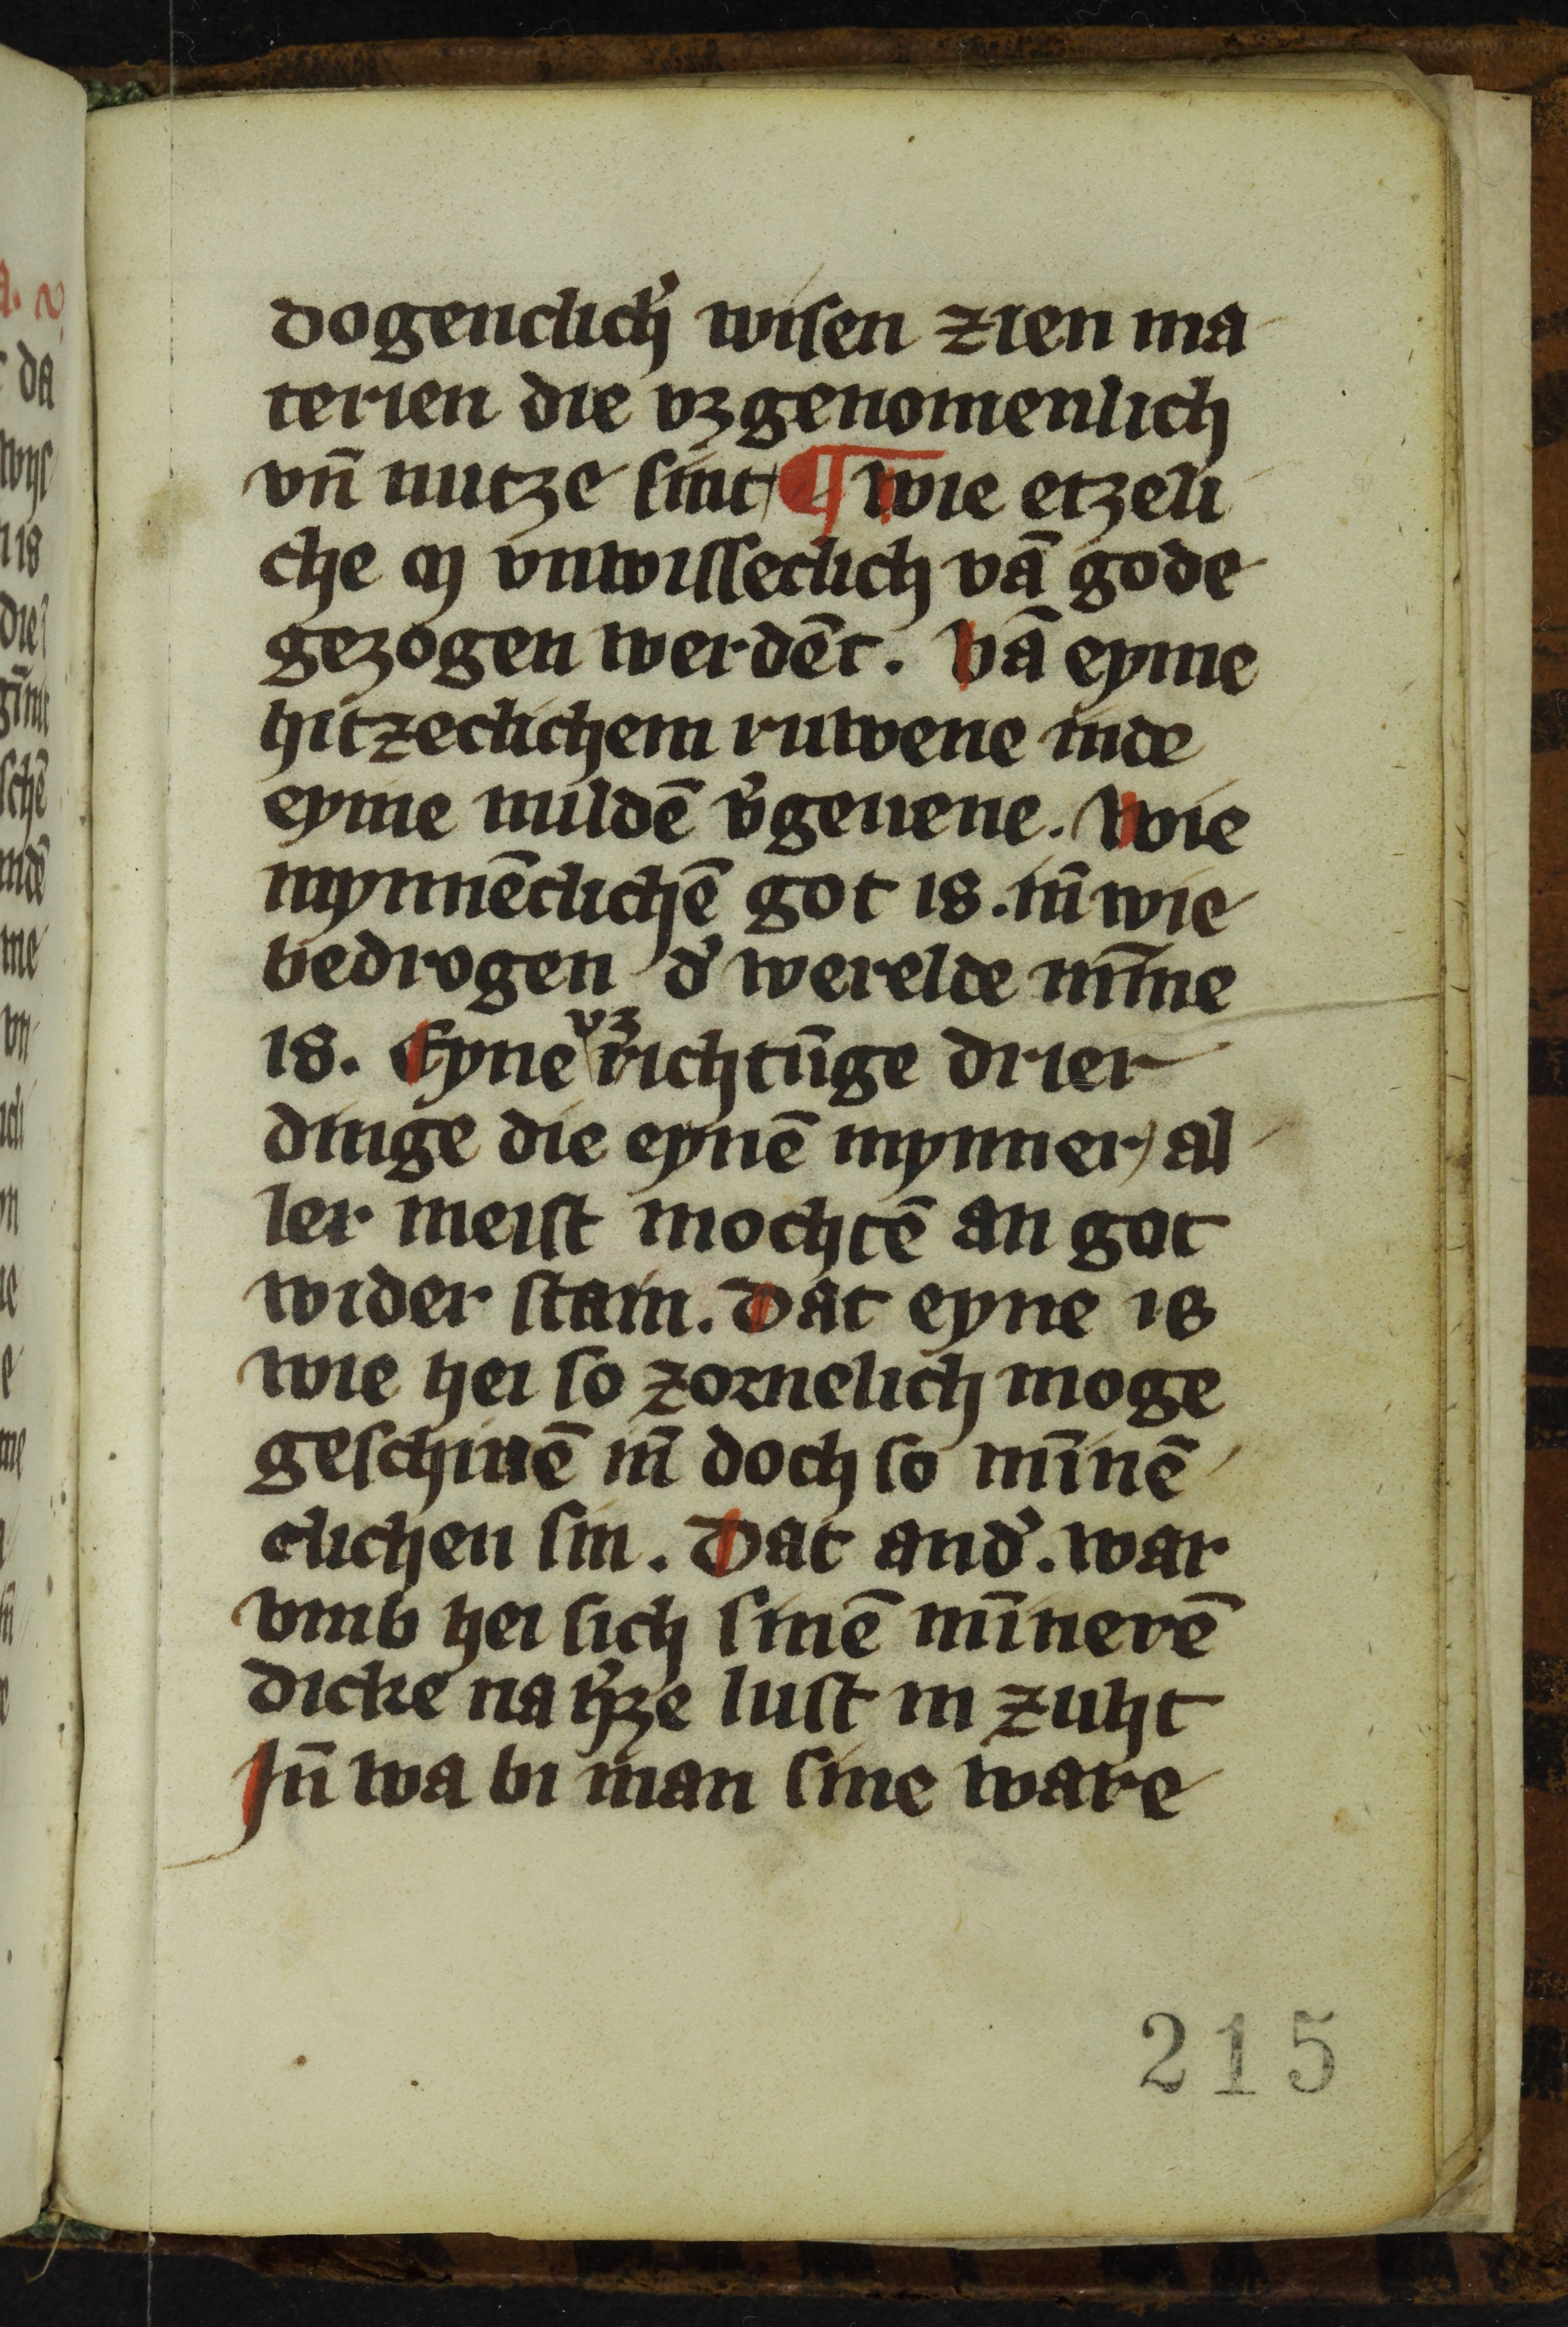 dogenclich' wisen zien ma
terien die vzgenomenlich
vn̄ nutze sint ¶ wie etzeli
che mē vnwisseclich vā gode
gezogen werdēt. Vā eyme
hitzeclichem ruwene inde
eyme mildē v'geuene. Wie
mynnēclichē got is. in̄ wie
bedrogen d' werelde mīne
is. Eyne vzrichtūge drier
dinge die eynē mynner al
ler meist mochtē an got
wider stain. Dat eyne is
wie hei so zornelich moge
geschinē in̄ doch so mīnē
clichen sin. Dat and'. war
vmb hei sich sinē mīnerē
dicke na h'ze lust in zuht
In̄ wa bi man sine ware
215